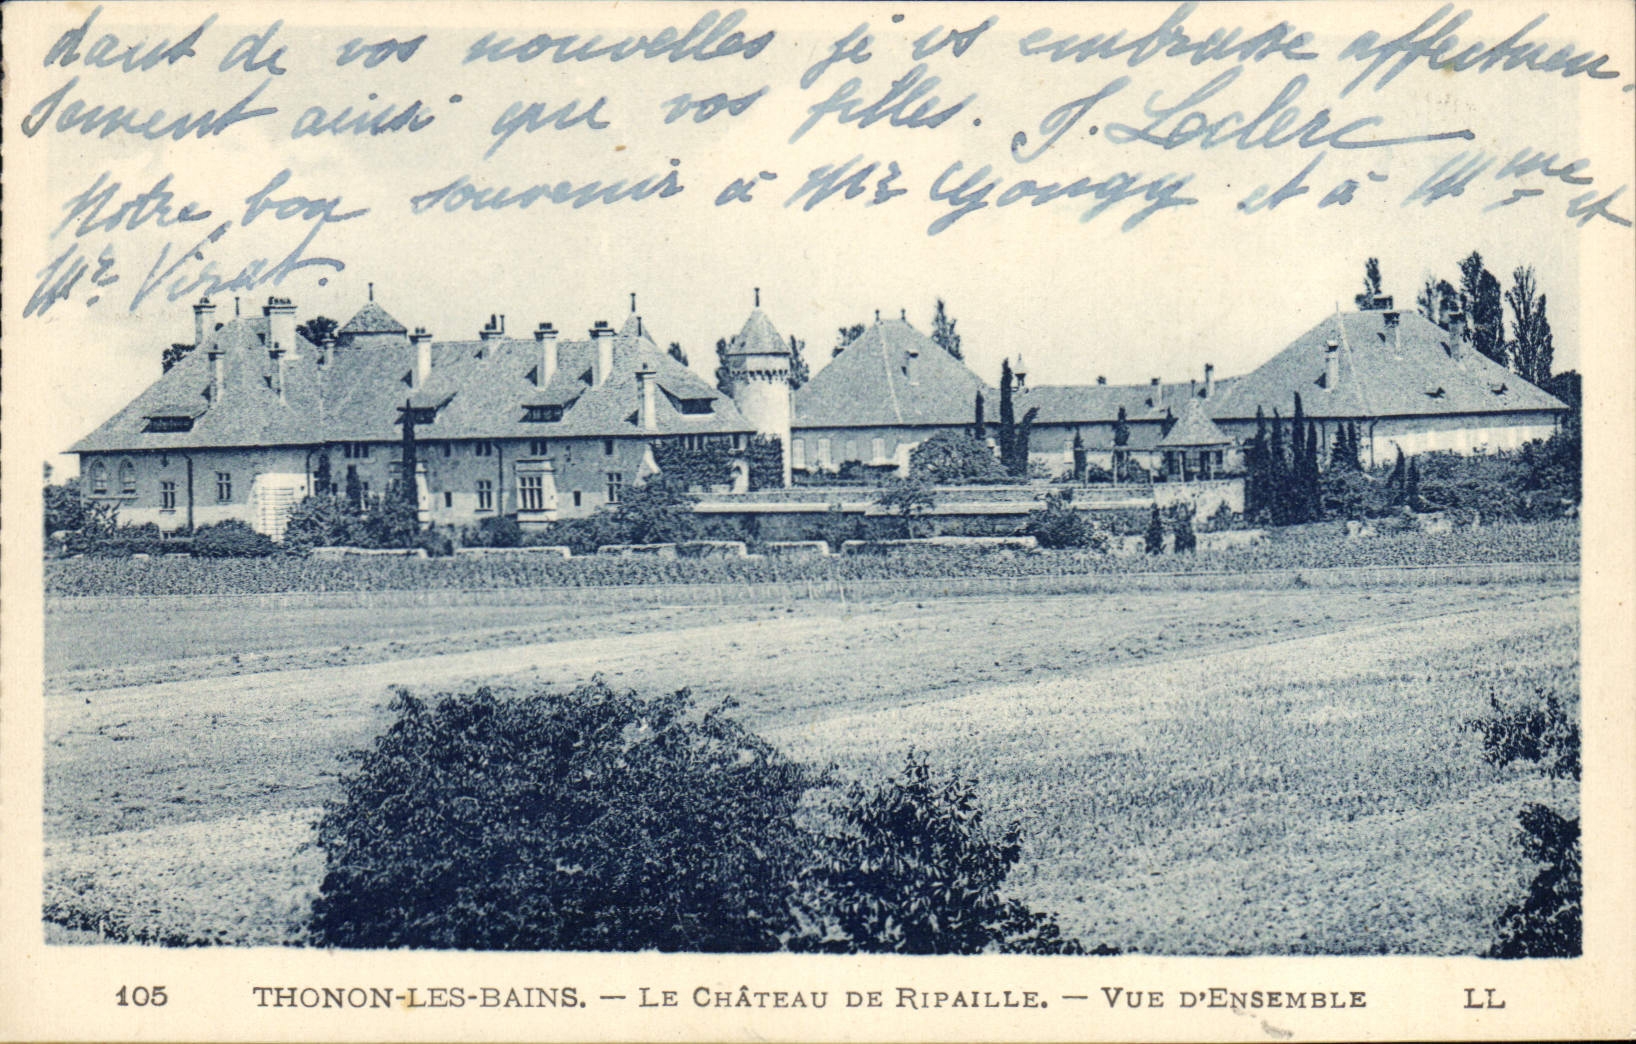 dant de vos nouvelles je vs embrasse affectueu
sement ainsi que vos filles. J. Leclerc
Notre bon souvenir à Mr Gongy et à Mme et
Mr Virat.
105 THONON-LES-BAINS. — LE CHÂTEAU DE RIPAILLE. — VUE D'ENSEMBLE LL